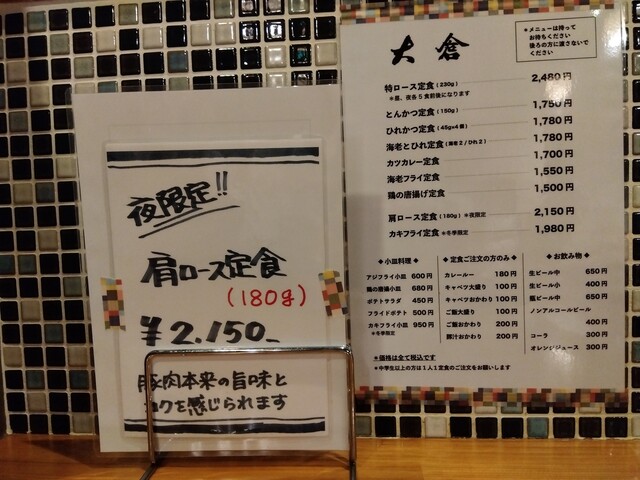 夜限定!!
肩ロース定食
(180g)
¥2.150_
豚肉本来の旨味と
コクを感じられます
大倉
*メニューは持って
お待ちください
後ろの方に渡さないで
ください
特ロース定食(230g) 2,480円
*昼、夜各5食前後になります
とんかつ定食(150g) 1,750円
ひれかつ定食(45g×4個) 1,780円
海老とひれ定食(海老2/ひれ2) 1,780円
カツカレー定食 1,700円
海老フライ定食 1,550円
鶏の唐揚げ定食 1,500円
肩ロース定食(180g)*夜限定 2,150円
カキフライ定食*冬季限定 1,980円
◆小皿料理◆
アジフライ小皿 600円
鶏の唐揚小皿 680円
ポテトサラダ 450円
フライドポテト 500円
カキフライ小皿 950円
*冬季限定
◆定食ご注文の方のみ◆
カレールー 180円
キャベツ大盛り 100円
キャベツおかわり 100円
ご飯大盛り 100円
ご飯おかわり 200円
豚汁おかわり 200円
◆お飲み物◆
生ビール中 650円
生ビール小 400円
瓶ビール中 650円
ノンアルコールビール
400円
コーラ 300円
オレンジジュース 300円
*価格は全て税込です
*中学生以上の方は1人1定食のご注文をお願いします